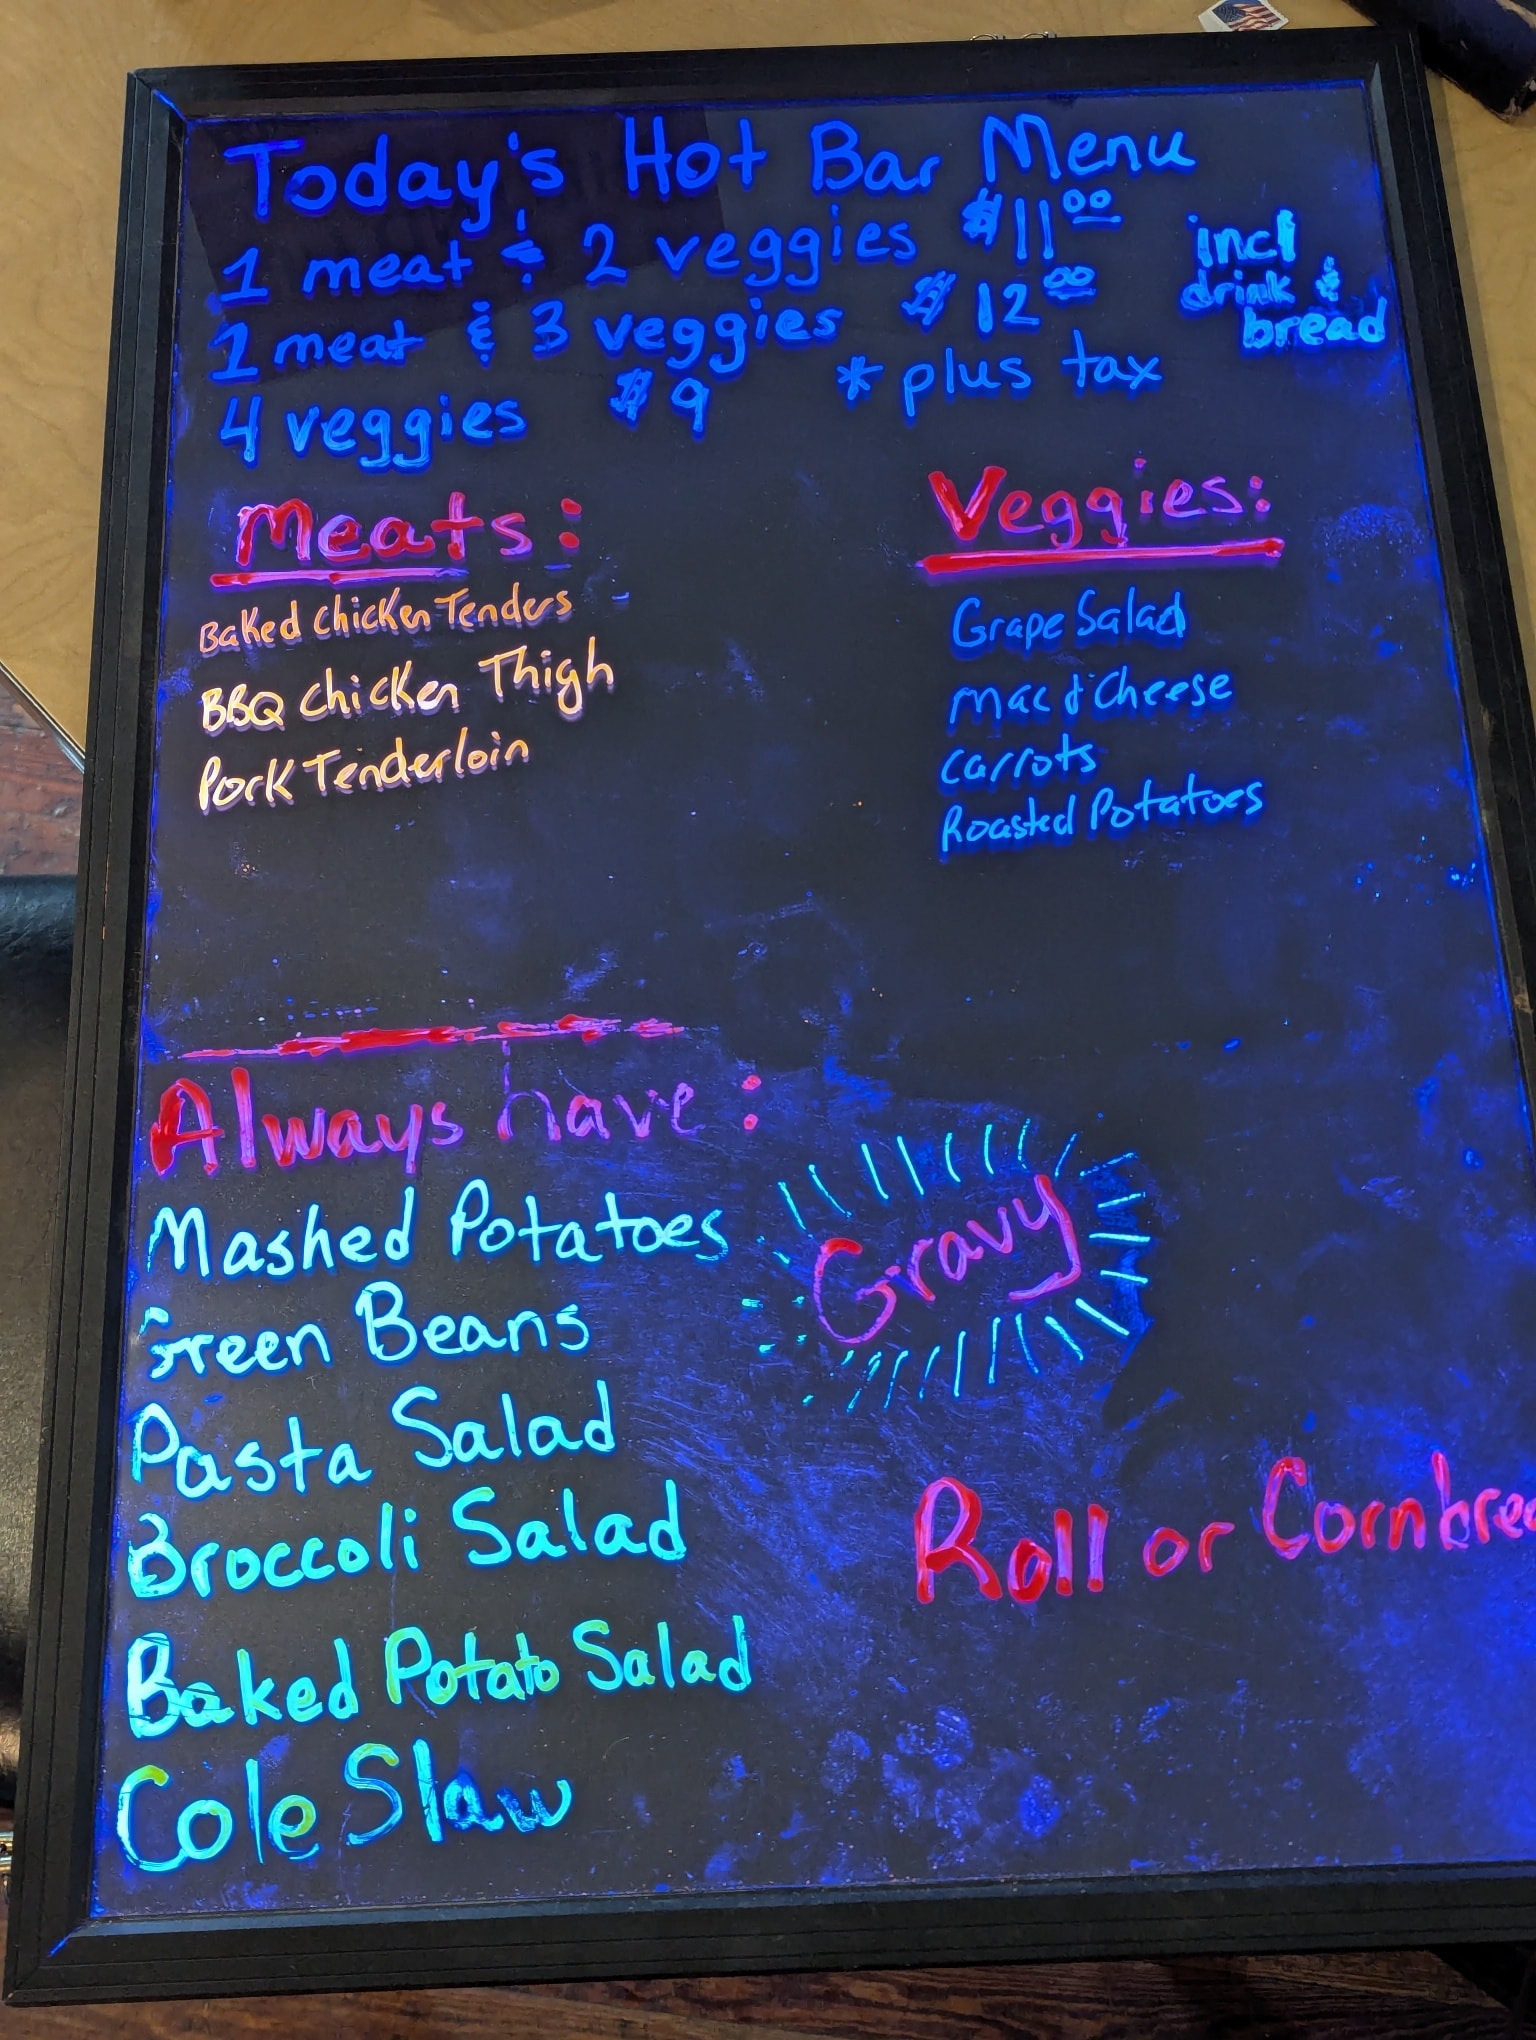 Today's Hot Bar Menu
1 meat & 2 veggies $11.00
1 meat & 3 veggies $12.00
incl
drink &
bread
4 veggies $9 *plus tax
Meats:
Baked Chicken Tenders
BBQ Chicken Thigh
Pork Tenderloin
Veggies:
Grape Salad
Mac & Cheese
Carrots
Roasted Potatoes
Always have:
Mashed Potatoes
Gravy
Green Beans
Pasta Salad
Broccoli Salad
Roll or Cornbrea
Baked Potato Salad
Cole Slaw